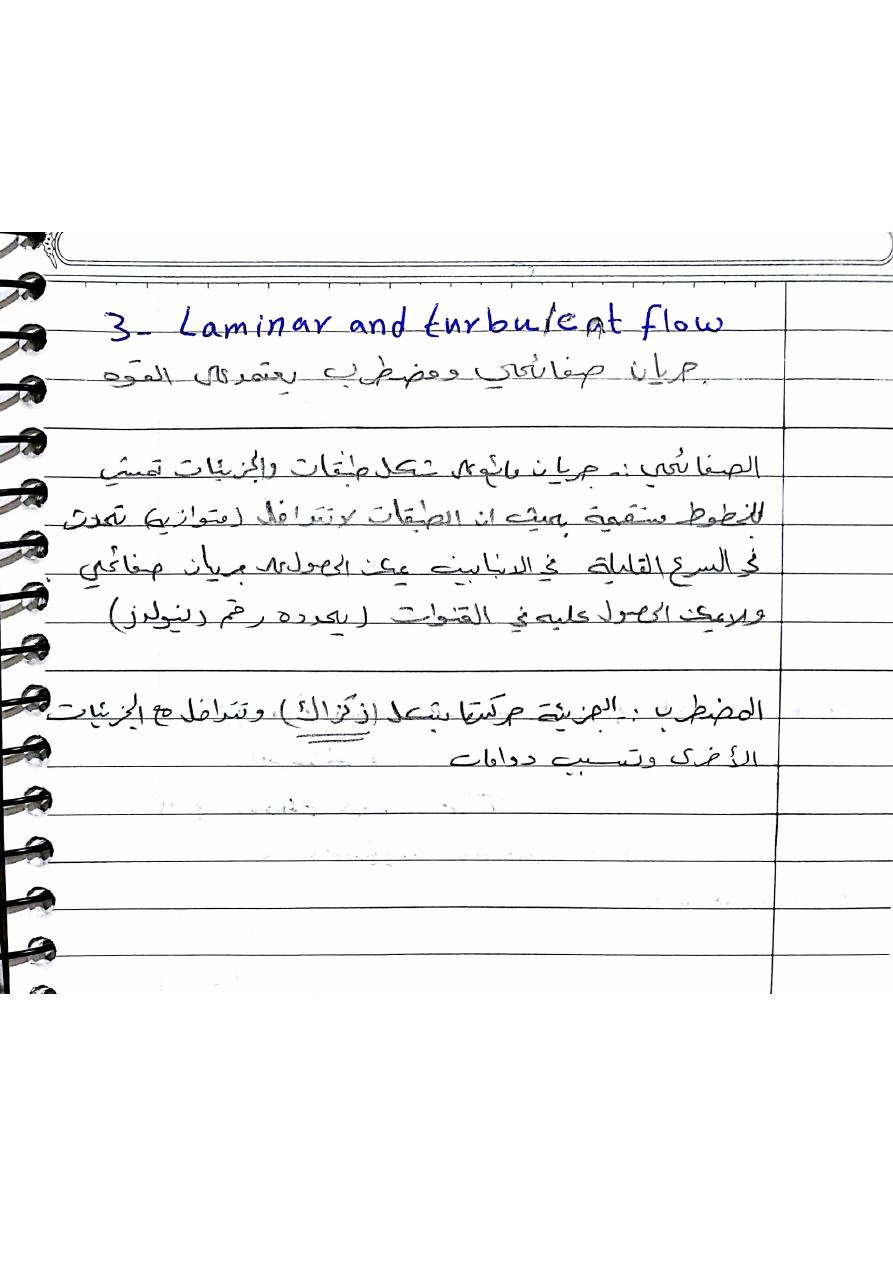 3- Laminar and turbulent flow
جريان صفائحي ومضطرب يعتمد على القوه
الصفائحي :- جريان مائع على شكل طبقات والجزيئات تمشي
بخطوط مستقيمة بحيث ان الطبقات لا تتداخل (متوازيه) تحدث
في السرع القليلة في الانابيب يمكن الحصول على جريان صفائحي .
ولا يمكن الحصول عليه في القنوات (يحدده رقم رينولدز)
المضطرب :- الجزيئة حركتها بشكل (زكزاك) وتتداخل مع الجزيئات
الأخرى وتسبب دوامات